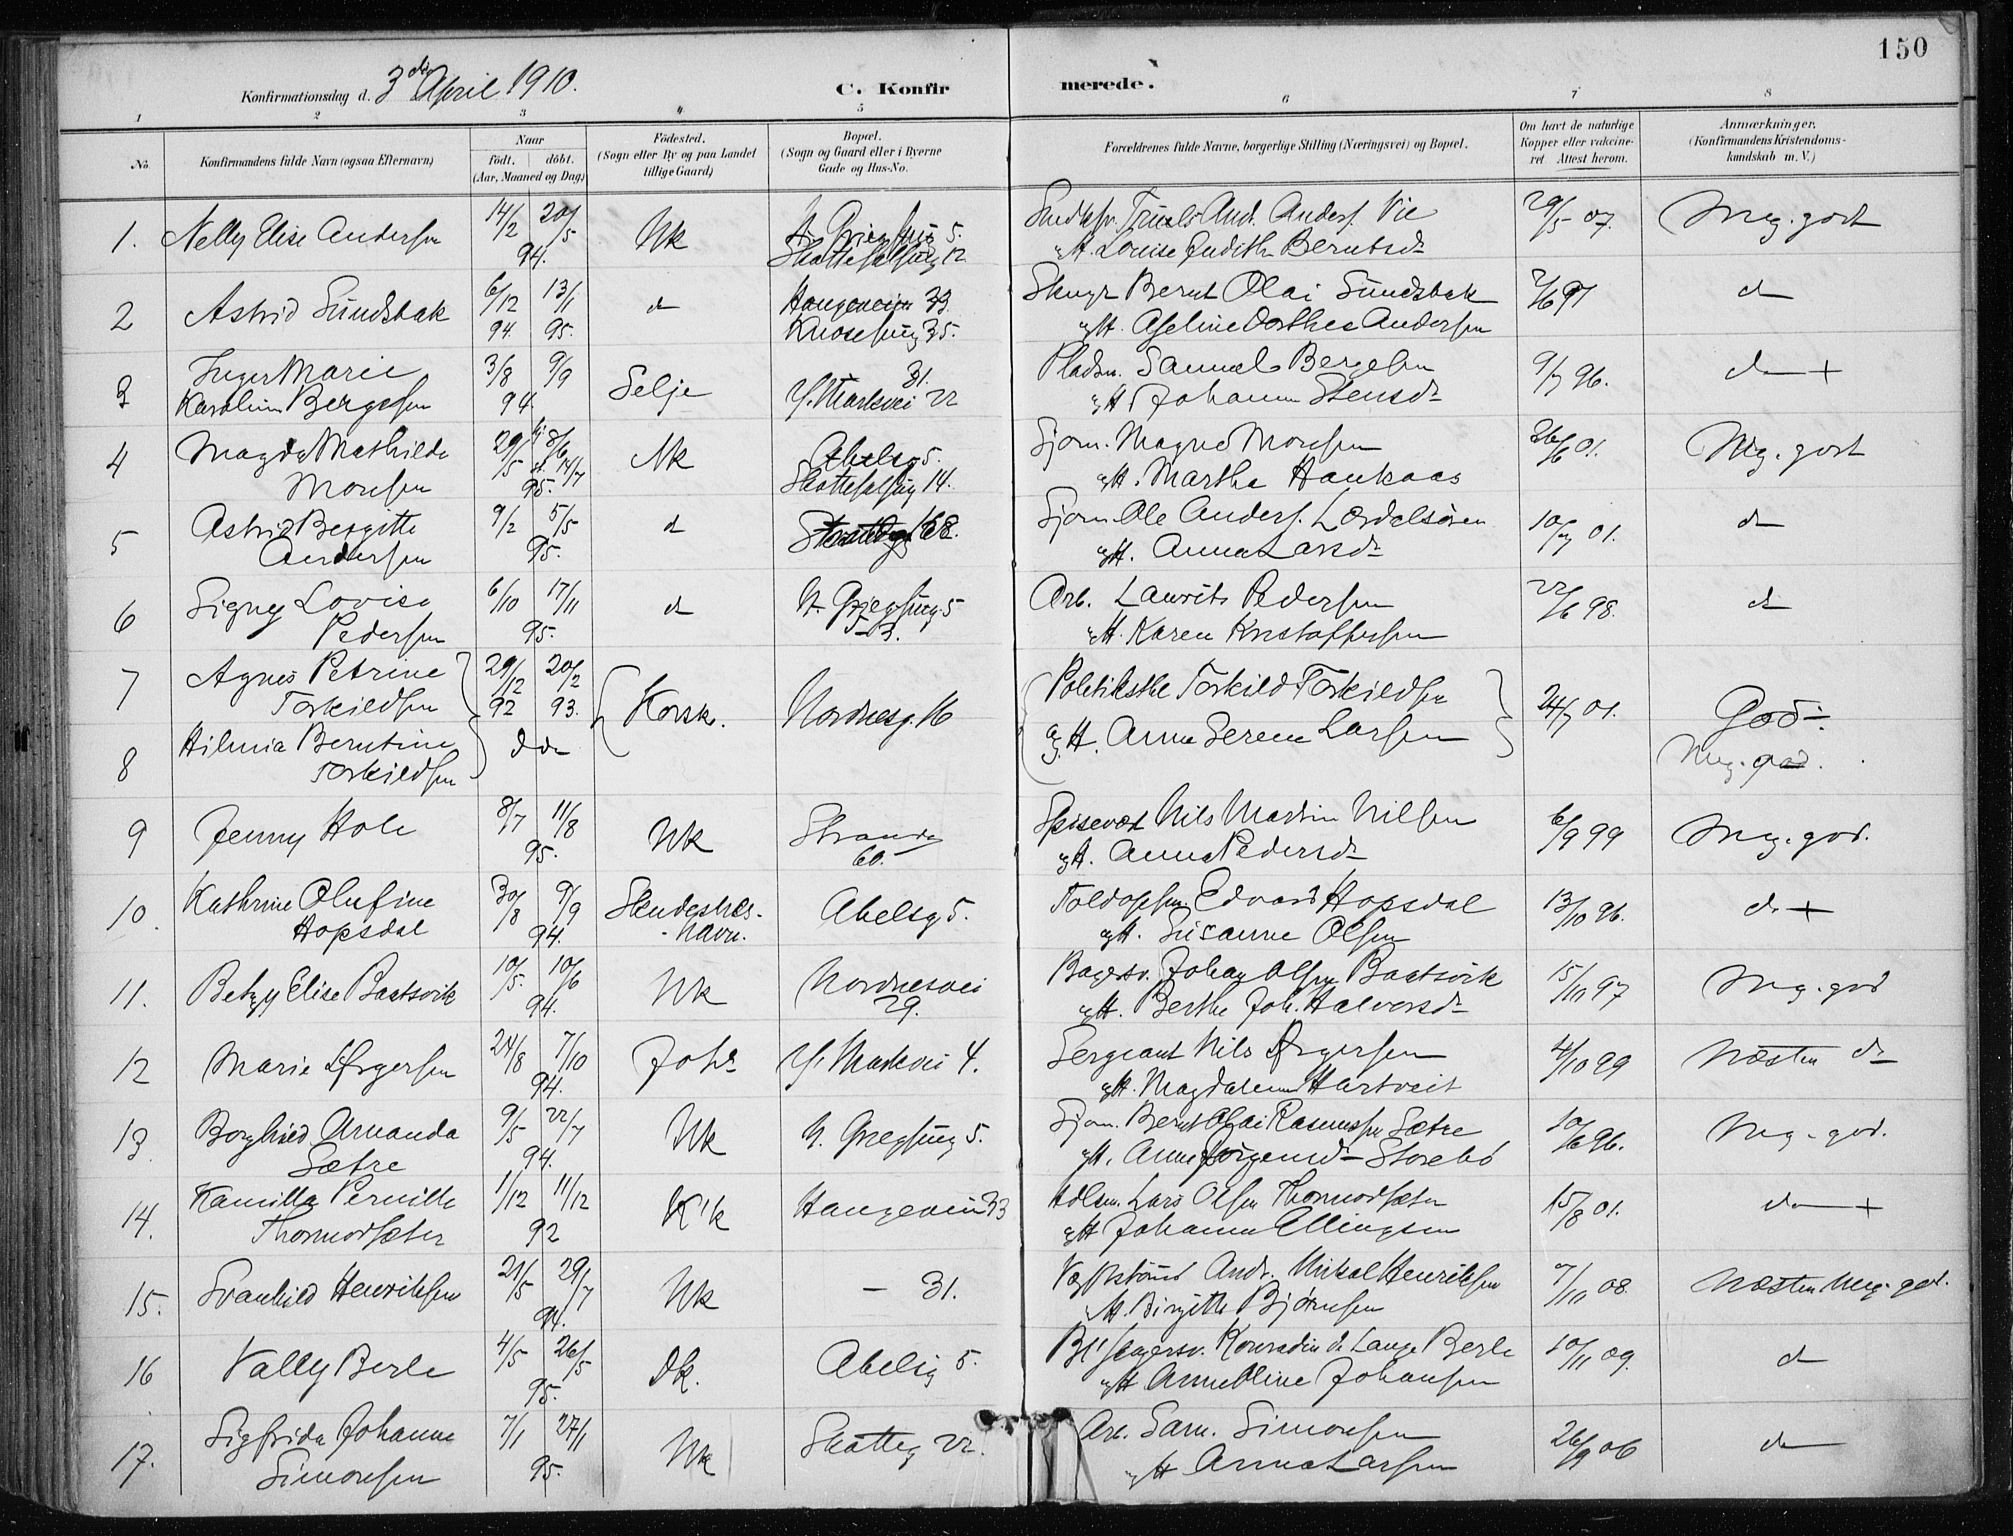 150
Konfirmationsdag d. 3die April 1910.
C. Konfirmerede.
1 2 3 4 5 6 7 8
No.
Konfirmandens fulde Navn (ogsaa Efternavn)
Naar
födt. döbt.
(Aar, Maaned og Dag)
Födested.
(Sogn eller By og paa Landet
tillige Gaard)
Bopæl.
(Sogn og Gaard eller i Byerne
Gade og Hus-No.
Forældrenes fulde Navne, borgerlige Stilling (Næringsvei) og Bopæl.
Om havt de naturlige
Kopper eller vakcine-
ret Attest herom.
Anmærkninger.
(Konfirmandens Kristendoms-
kundskab m. V.)
1. Nelly Elise Andersen 14/2 20/5 94. Nk
Skottesalsmg 12
And. Anders. Vie
gH. Louise Judith Berntsdr
29/5 07. Mg. godt
2 Astrid Sundsbak 6/12 94. 13/1 95. d
Haugeveien 33
Knosesmg 35.
Bernt Olai Sundsbak
gH. Aseline Dorthea Andersen
7/6 97 d
3 Inger Marie
Karoline Bergesen 3/8 9/9 94 Selje
31.
Y. Markevei 22
Pladsm. Samuel Bergesen
gH Johanne Stensdr
9/7 96. d +
4 Magda Mathilde
Monsen 29/5 8/6 14/7 95. Nk
Abelsg 5.
Skottesalsmg 14.
Sjøm. Magne Monsen
gH. Martha Haukaas
26/6 01. Mg. godt
5 Astrid Bergitte
Andersen 9/2 5/5 95. d
68.
Sjøm. Ole Anders. Lærdalsøren
gH. Anna Larsdr
10/7 01. d
6 Signy Lovise
Pedersen 6/10 17/11 95. d
N. Griegsmg. 5
Arb. Laurits Pedersen
gH. Karen Kristoffersen
22/6 98. d
7 Agnes Petrine
Torkildsen 29/12 92 20/2 93. Korsk. Nordnesg. 16
Torkild Torkildsen
gH. Anne Serene Larsen
24/7 01. God
8 Hilmia Berntine
Torkildsen d d
Mg. god.
9 Jenny Hole 8/7 11/8 95. Nk
Strandg
60.
Spisevært Nils Martin Nilsen
gH. Anna Pedersdr
6/9 99 Mg. god.
10. Kathrine Olufine
Hopsdal 30/8 9/9 94.
Skudesnes-
havn.
Abelsg 5.
Edvard Hopsdal
gH. Susanne Olsen
13/10 96. d. +
11. Betzy Elise Baatsvik 10/5. 10/6 94. Nk
Nordnesvei
29.
Bagersv. Johan Olsen Baatsvik
gH. Berthe Joh. Halvorsdr
15/10 97 Mg. god
12 Marie Ørgersen 24/8 7/10 94. Johs Y. Markevei 4.
Sergeant Nils Ørgersen
gH. Magdalene Hartveit
4/10 99 Næsten d
13. Borghild Amanda
Sætre 9/5 22/7 94. Nk N. Griegsmg 5.
Sjøm. Bernt Olai Rasmussen Sætre
gH. Anne Jörgensdr Storebö
10/6 96. Mg. god.
14. Kamilla Pernille
Thormodsæter 1/12 11/12 92 Kk Haugeveien 33
Lars Olsen Thormodsæter
gH Johanne Ellingsen
15/8 01. d +
15. Svanhild Henriksen 21/5 29/7 94. Nk — 31.
Andr. Mikal Henriksen
gH. Birgitte Bjørnsen
7/10 08. Næsten Mg. god.
16 Vally Berle 4/5 26/5 95. Dk. Abelsg 5.
Konradin de Lange Berle
gH Anne Oline Johansen
10/11 09. d
17. Sigfrida Johanne
Simonsen 7/1 27/1 95. Nk Skotteg 22.
Arb. Sam. Simonsen
gH Anna Larsen
26/9 06 d